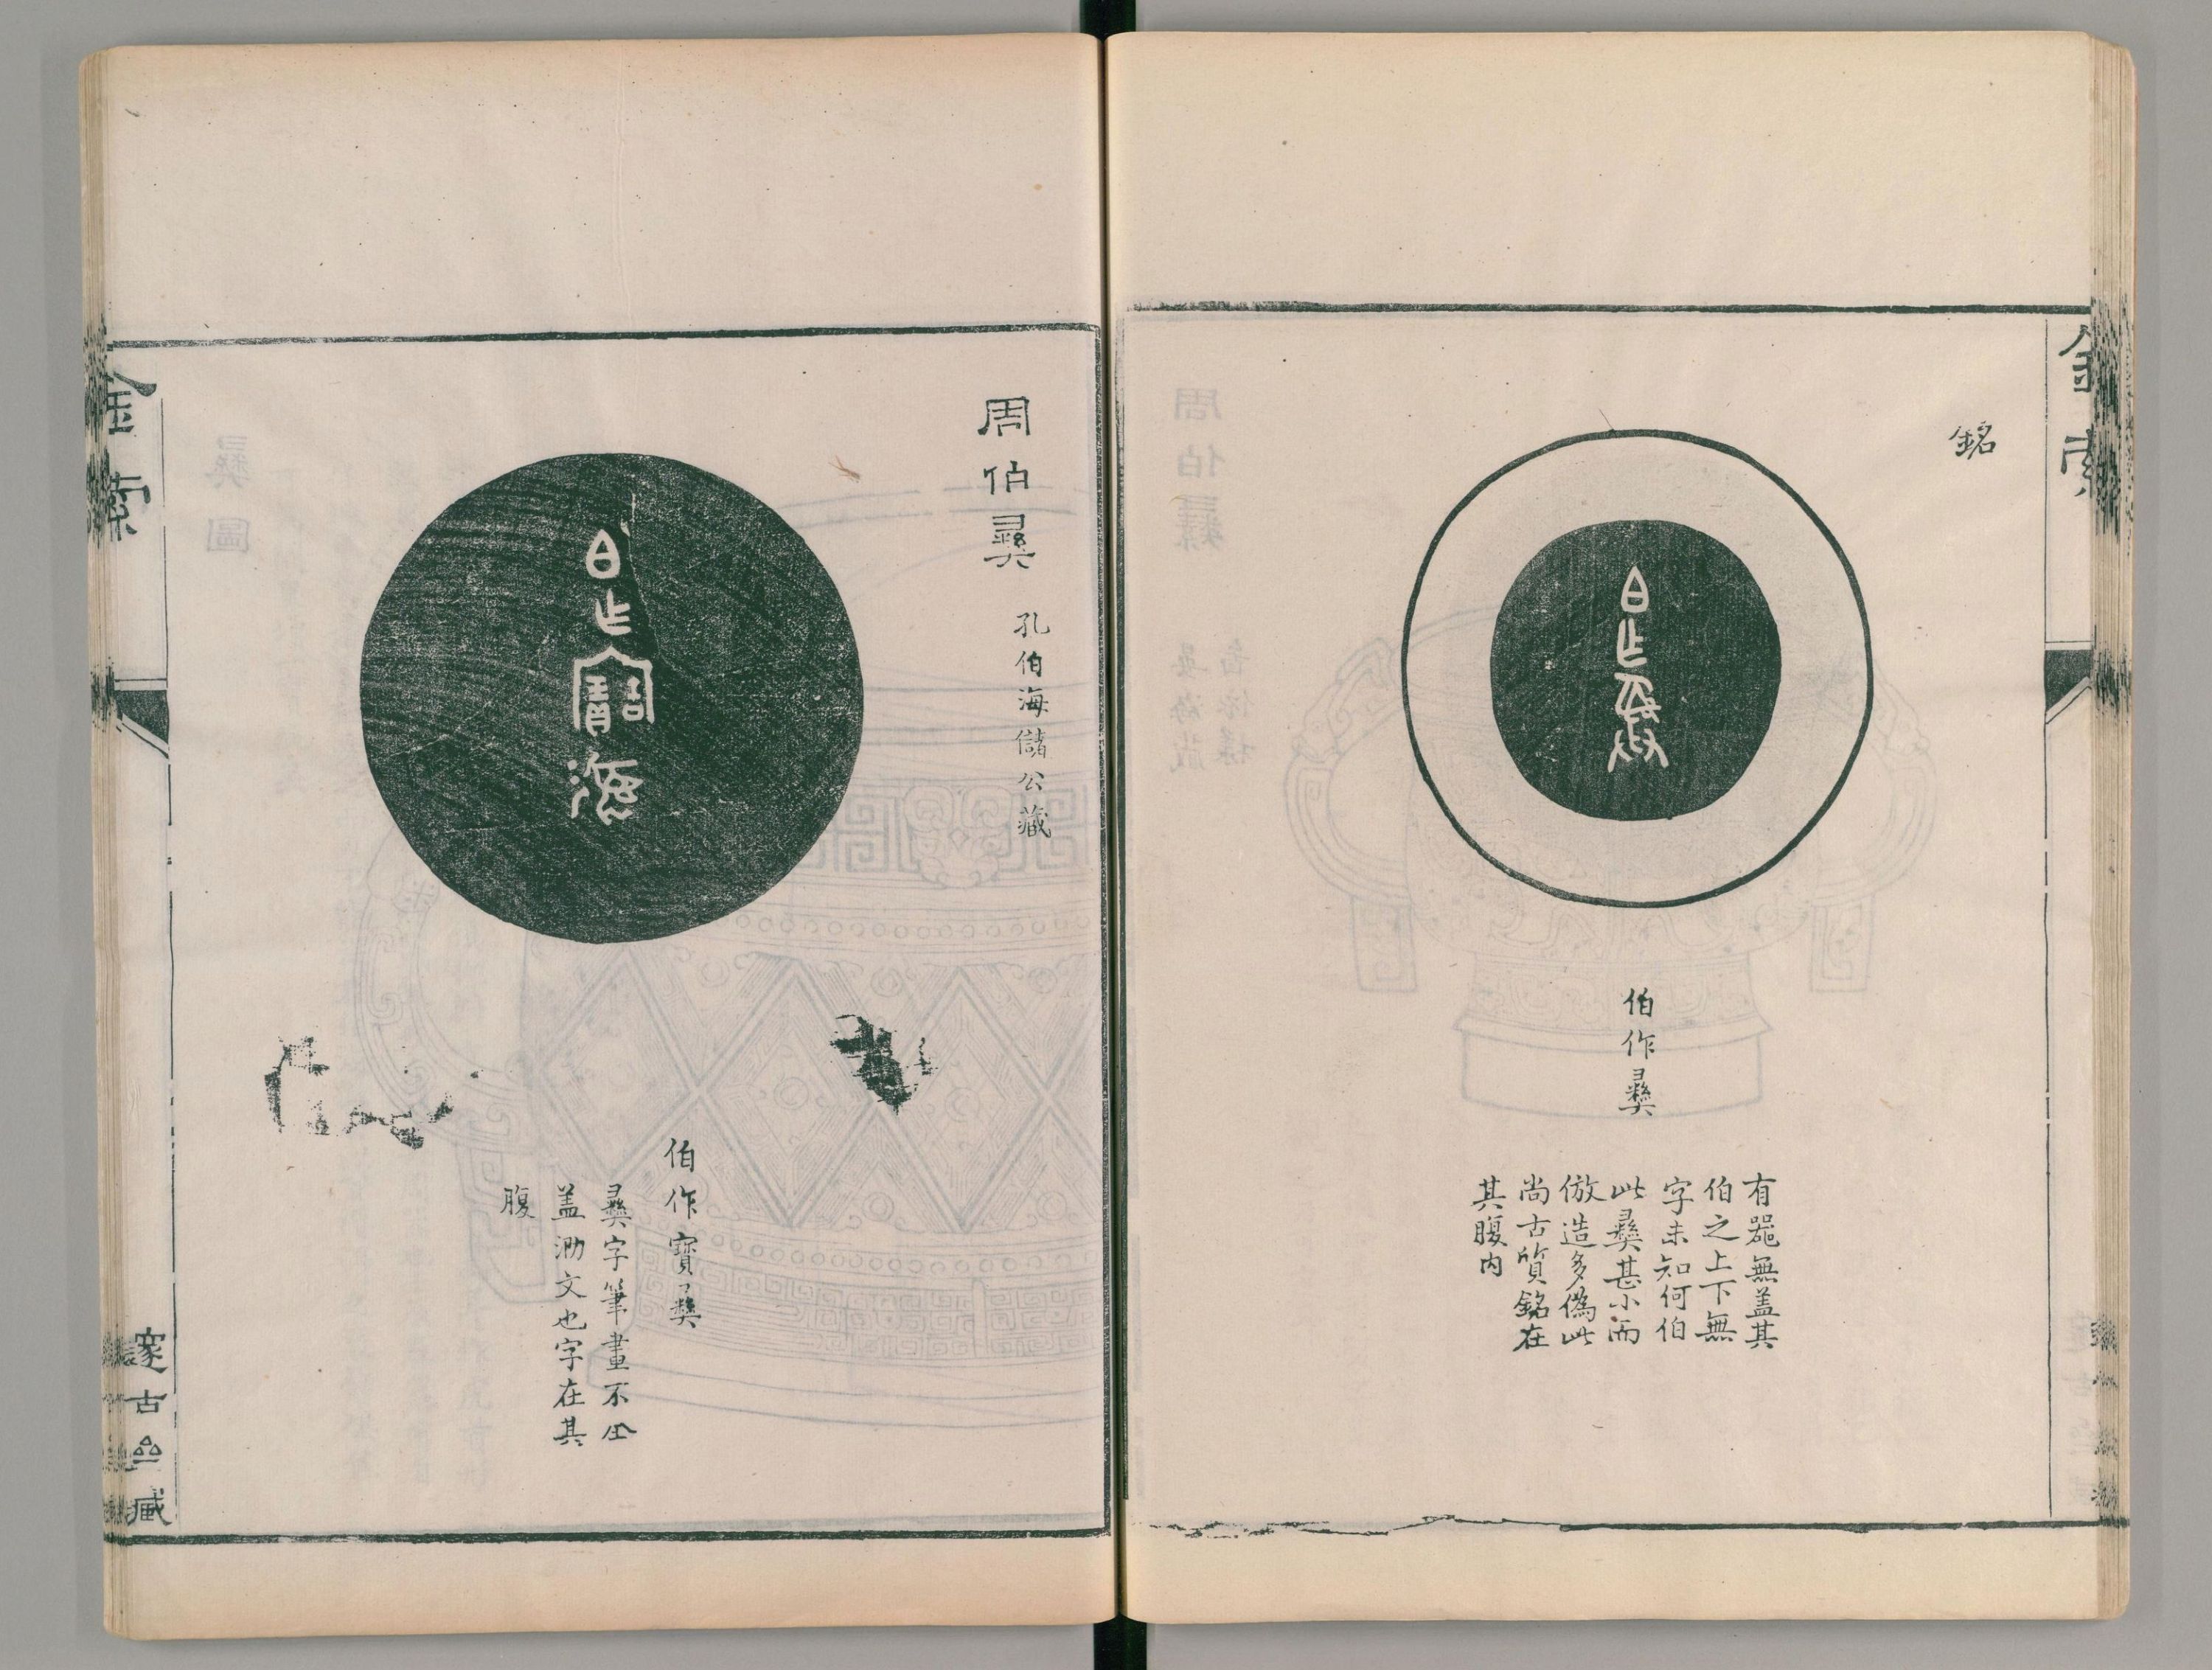 金索
銘
伯作彝
有器無蓋其
伯之上下無
字未知何伯
此彝甚小而
倣造多偽此
尚古質銘在
其腹內
周伯彝
孔伯海儲公藏
伯作寶彝
彝字筆畫不全
蓋泐文也字在其
腹
金索
邃古齋藏